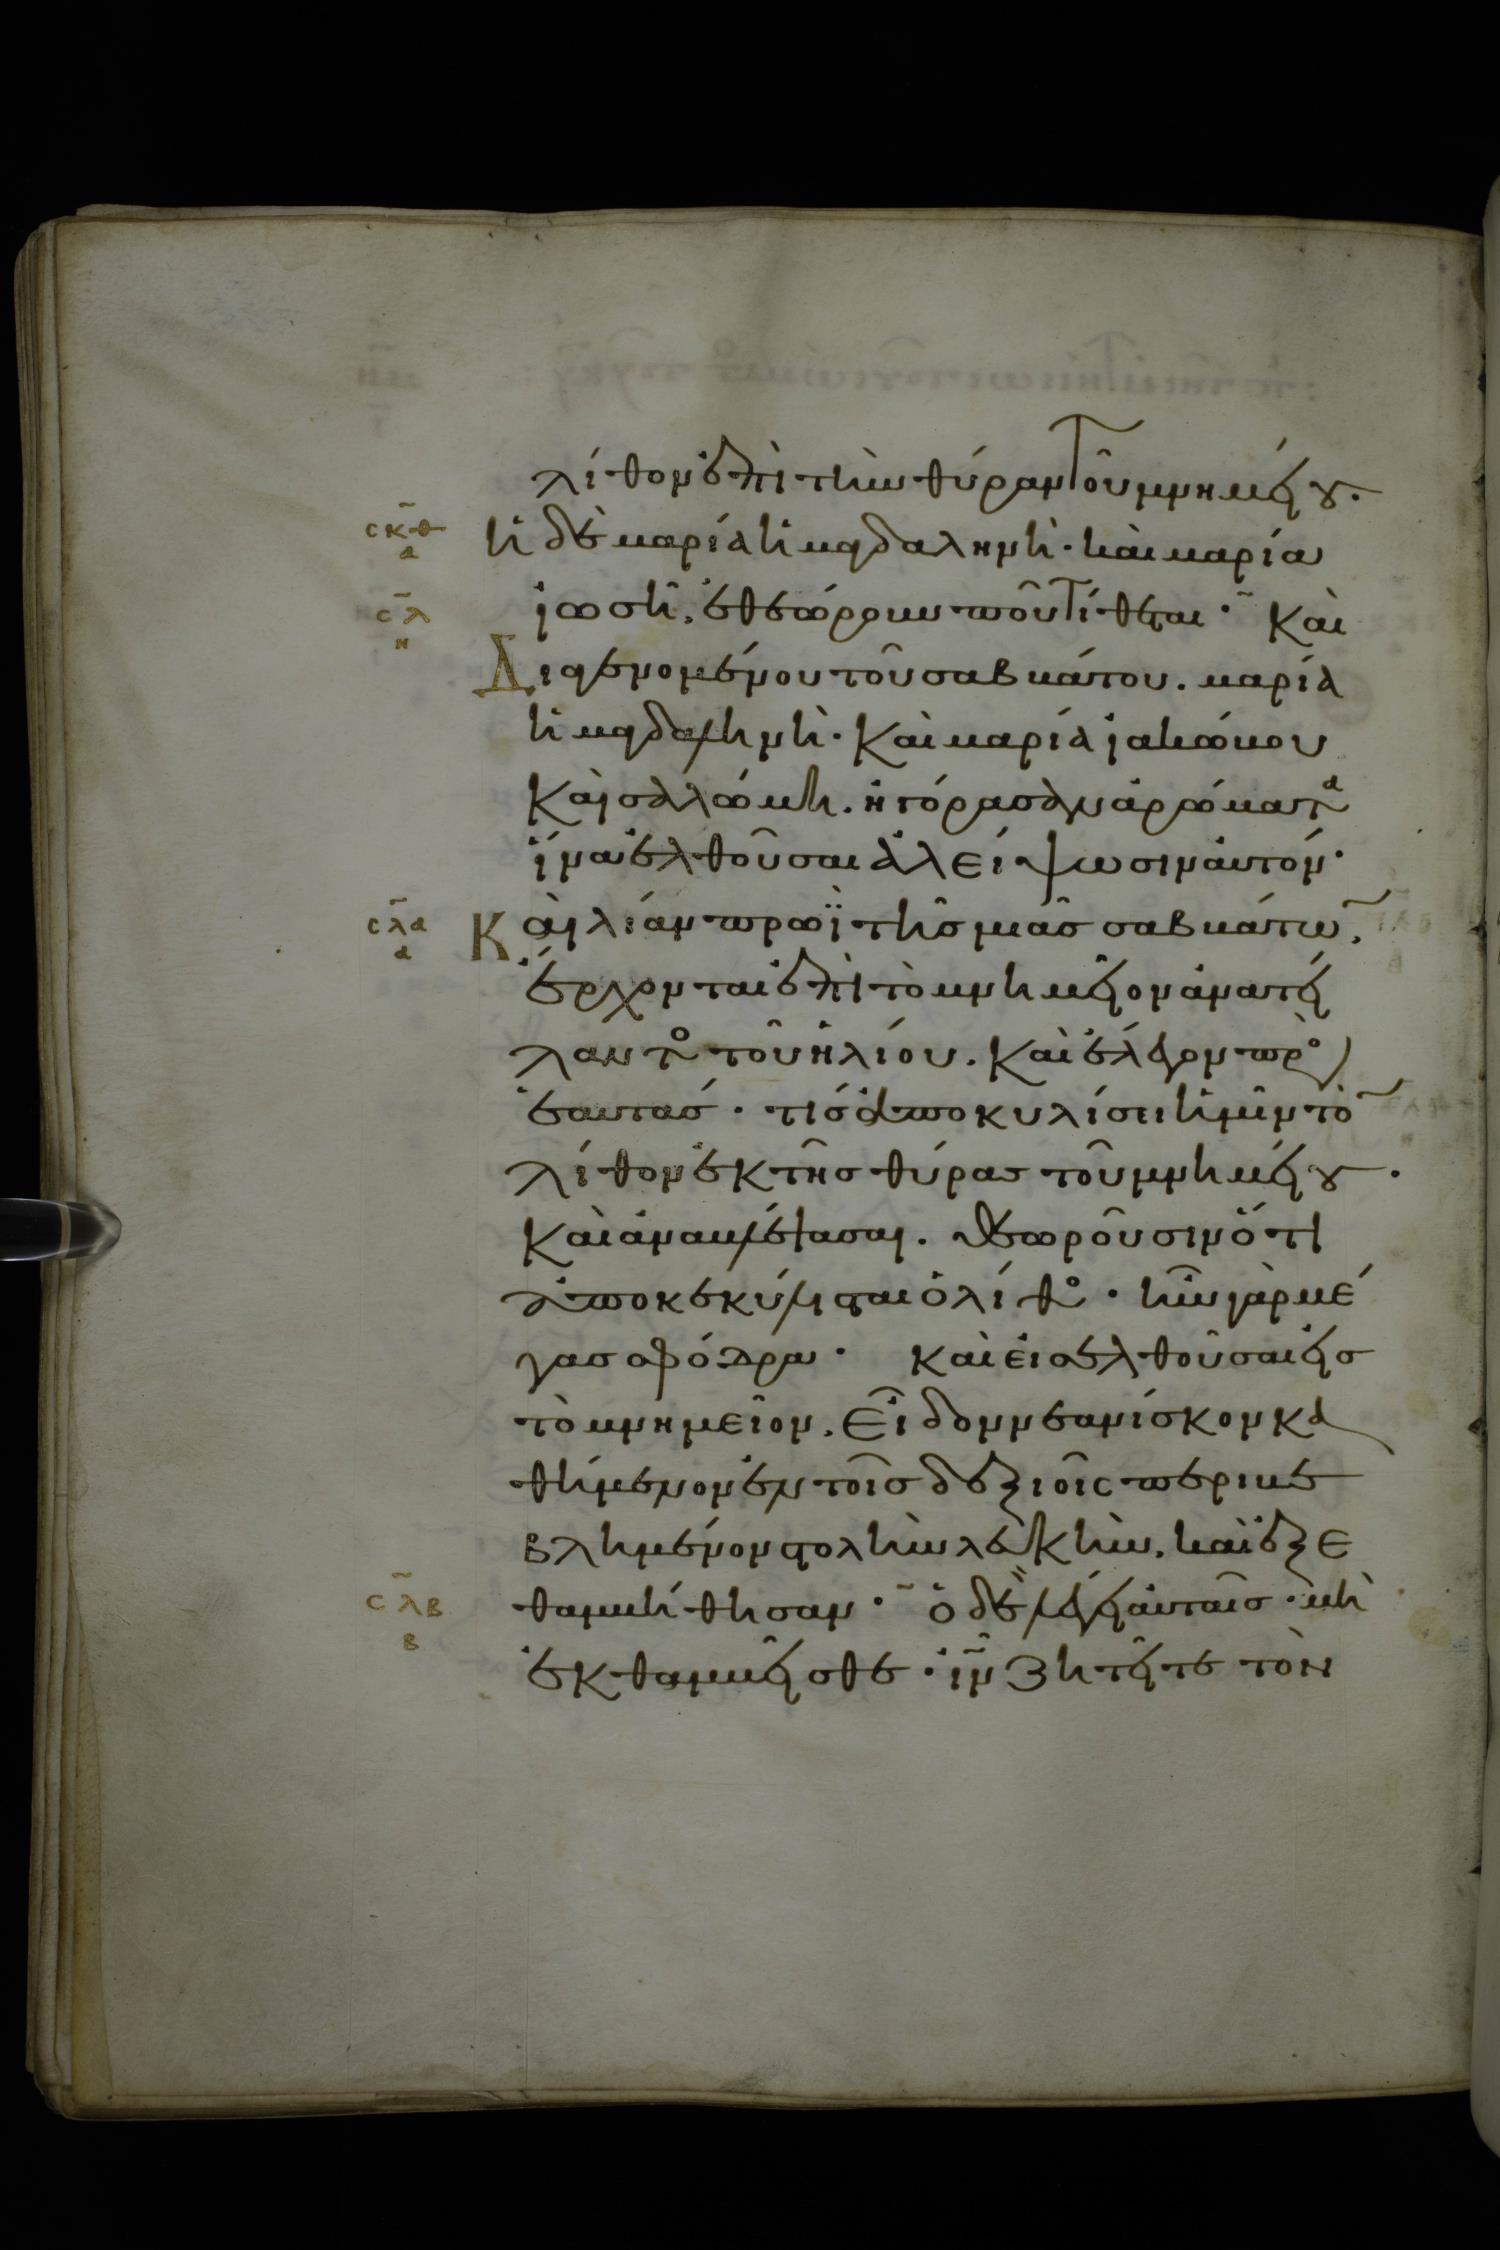 λίθον ἐπὶ τὴν θύραν τοῦ μνημείου.
σκθ α ἡ δὲ μαρία ἡ μαγδαληνὴ· καὶ μαρία
σλ η ἰωσῆ, ἐθεώρουν ποῦ τίθεται· Καὶ
Διαγενομένου τοῦ σαββάτου. μαρία
ἡ μαγδαληνὴ· Καὶ μαρία ἰακώβου
Καὶ σαλώμη. ἠγόρασαν ἀρώματα
ἵνα ἐλθοῦσαι ἀλείψωσιν αὐτόν·
σλα α Καὶ λίαν πρωῒ τῆς μιᾶς σαββάτων,
ἔρχονται ἐπὶ τὸ μνημεῖον ἀνατεί
λαντος τοῦ ἡλίου. Καὶ ἔλεγον πρὸς
ἑαυτάς· τίς ἀποκυλίσει ἡμῖν τὸν
λίθον ἐκ τῆς θύρας τοῦ μνημείου.
Καὶ ἀναβλέψασαι. θεωροῦσιν ὅτι
ἀποκεκύλισται ὁ λίθος· ἦν γὰρ μέ
γας σφόδρα· καὶ εἰσελθοῦσαι εἰς
τὸ μνημεῖον, Εἶδον νεανίσκον κα
θήμενον ἐν τοῖς δεξιοῖς περιβε
βλημένον στολὴν λευκὴν, καὶ ἐξε
σλβ β θαμβήθησαν· ὁ δὲ λέγει αὐταῖς· μὴ
ἐκθαμβεῖσθε· ἰν ζητεῖτε τὸν